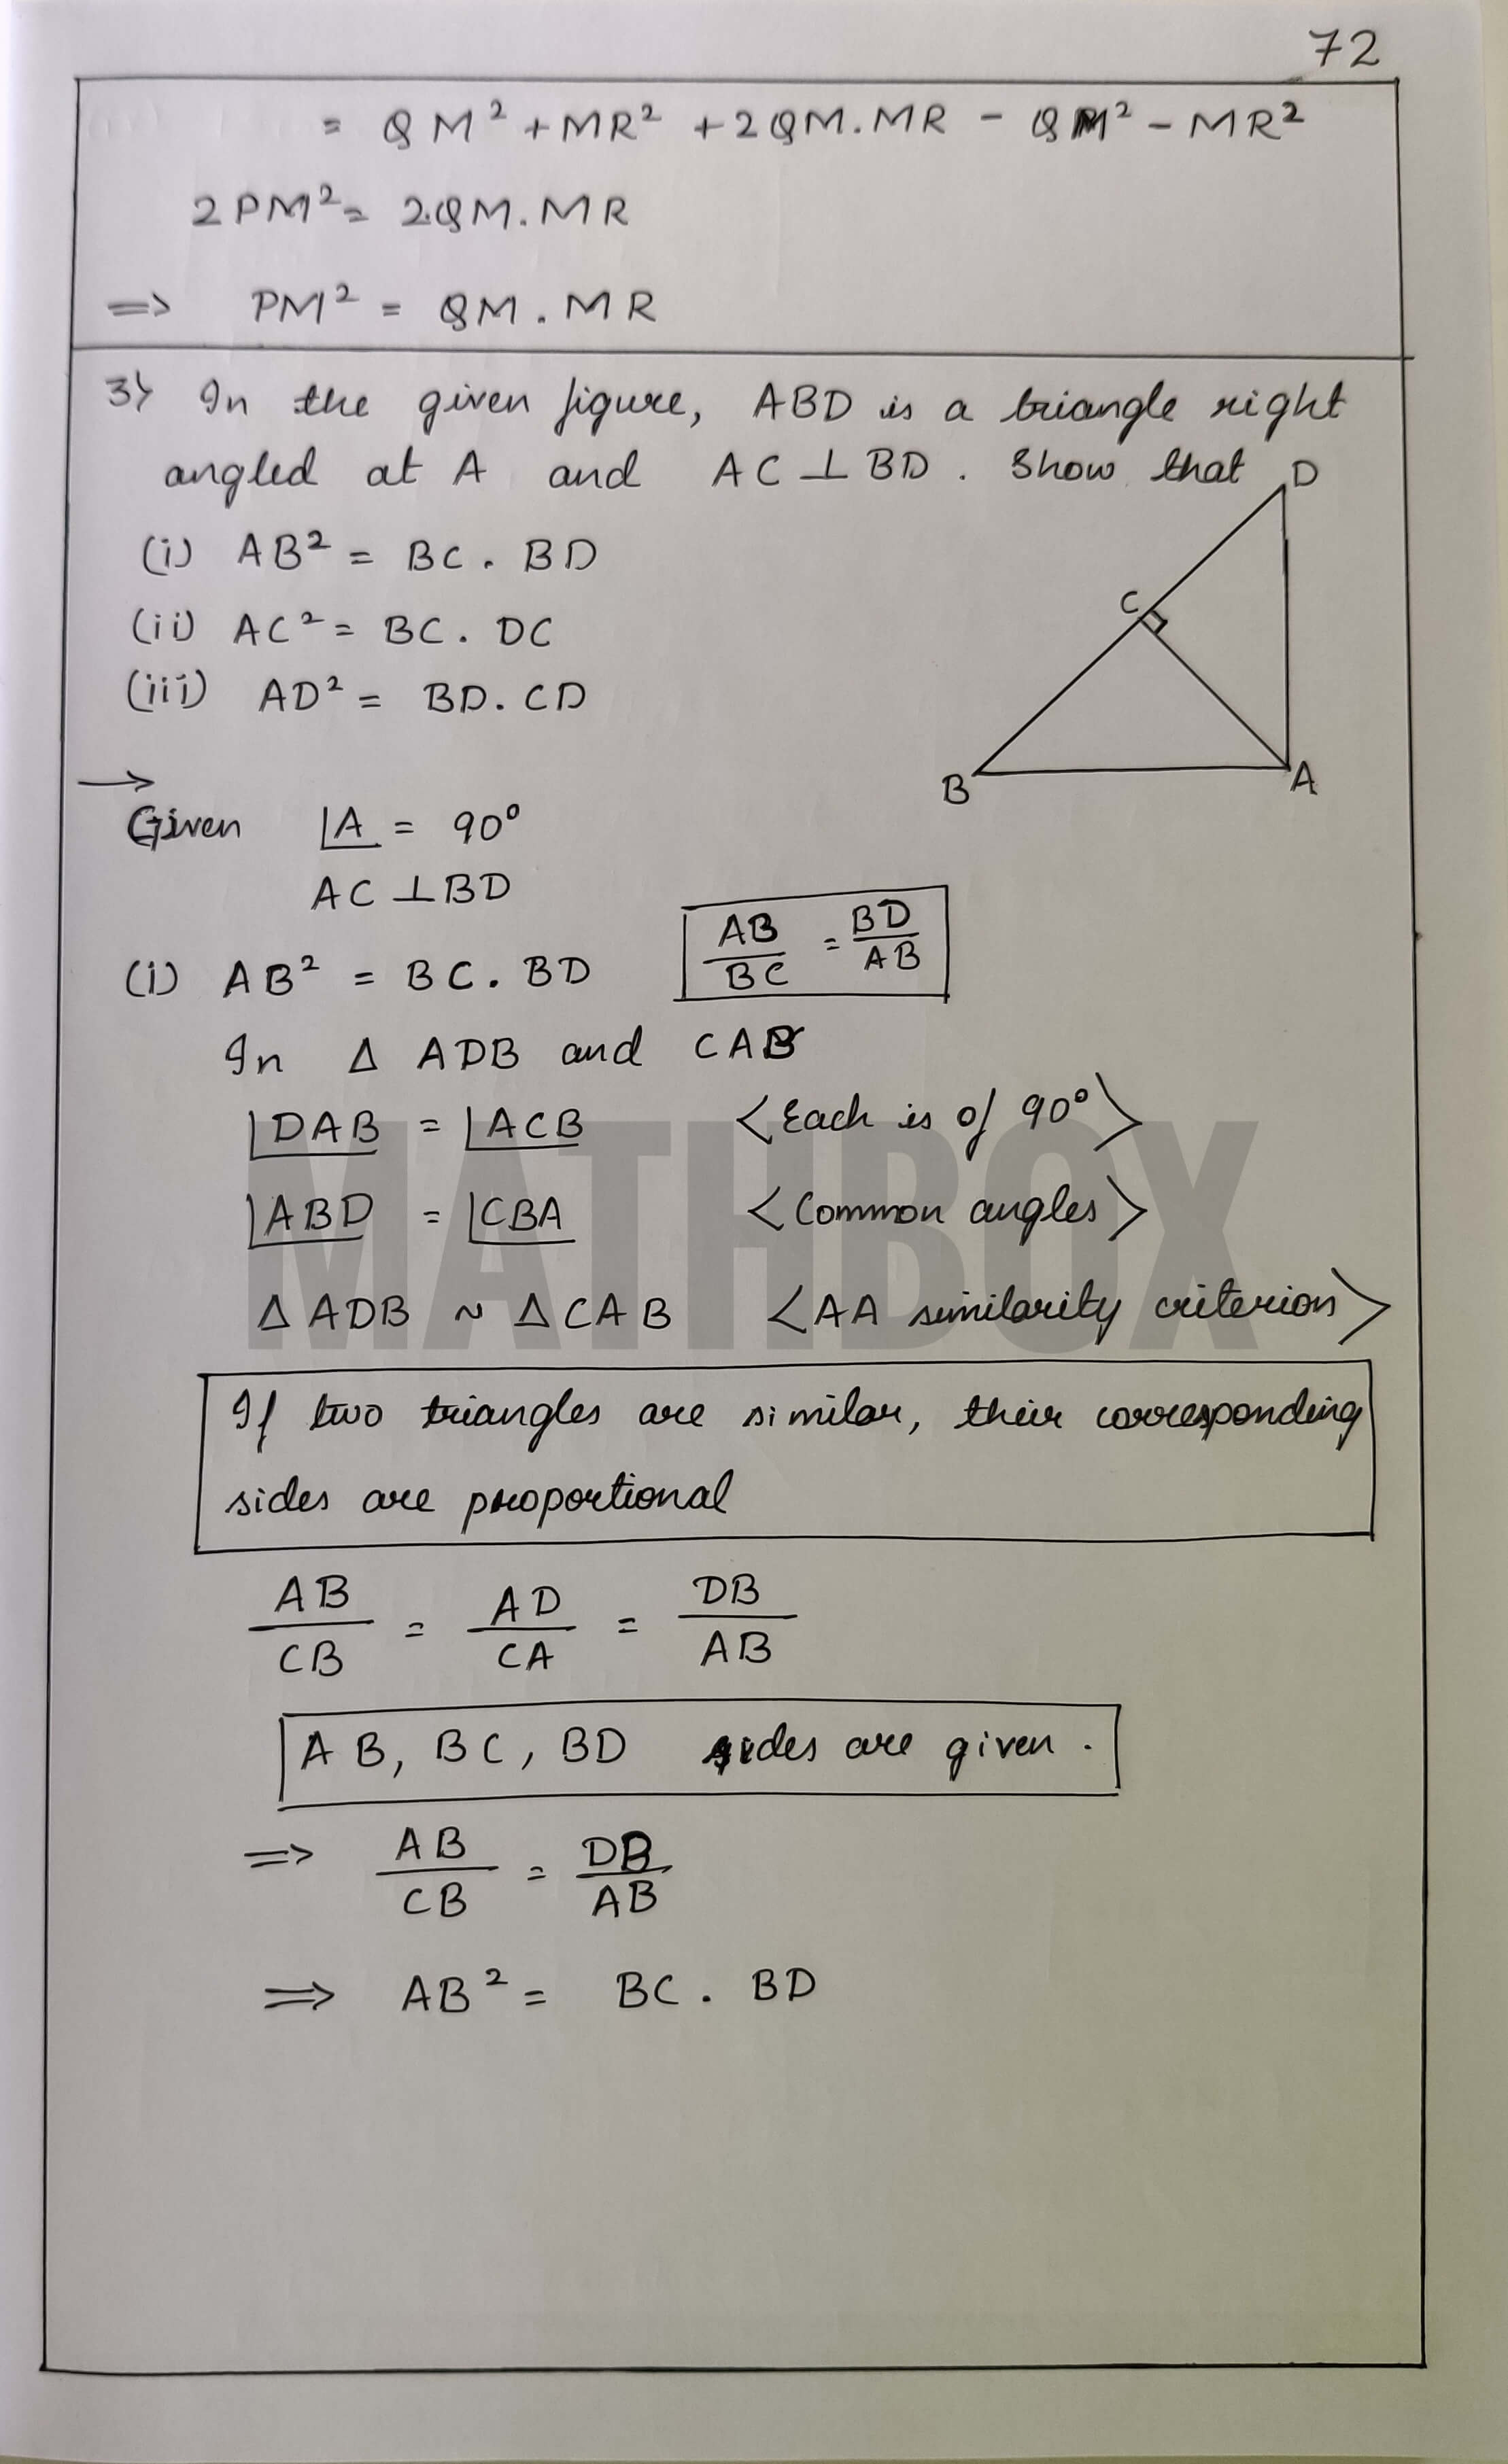 72
= QM² + MR² + 2QM.MR - QM² - MR²
2PM² = 2QM.MR
=> PM² = QM . MR
3) In the given figure, ABD is a triangle right
angled at A and AC ⊥ BD . Show that
D
(i) AB² = BC . BD
C
(ii) AC² = BC . DC
(iii) AD² = BD . CD
B A
→
Given ∠A = 90°
AC ⊥ BD
(i) AB² = BC . BD AB/BC = BD/AB
In Δ ADB and CAB
∠DAB = ∠ACB <Each is of 90°>
∠ABD = ∠CBA <Common angles>
MATHBOX
Δ ADB ~ Δ CAB <AA similarity criterion>
If two triangles are similar, their corresponding
sides are proportional
AB/CB = AD/CA = DB/AB
AB, BC, BD sides are given .
=> AB/CB = DB/AB
=> AB² = BC . BD